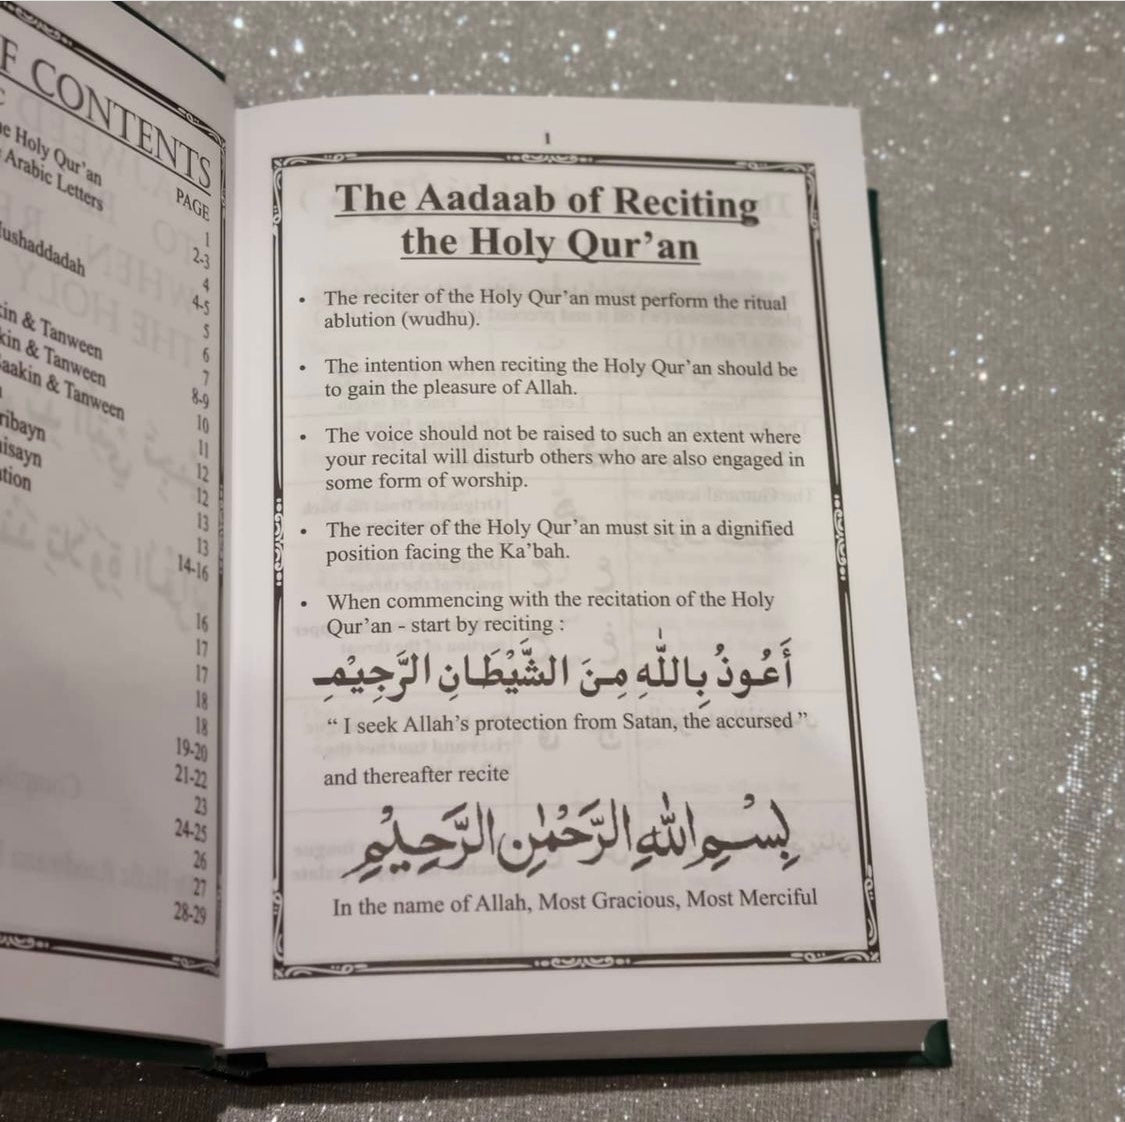 F CONTENTS
PAGE
e Holy Qur'an
1
Arabic Letters
2-3
4
ushaddadah
4-5
5
in & Tanween
6
kin & Tanween
7
aakin & Tanween
8-9
10
ribayn
11
isayn
12
tion
12
13
13
14-16
16
17
17
18
18
19-20
21-22
23
24-25
26
27
28-29
1
The Aadaab of Reciting
the Holy Qur'an
• The reciter of the Holy Qur'an must perform the ritual
ablution (wudhu).
• The intention when reciting the Holy Qur'an should be
to gain the pleasure of Allah.
• The voice should not be raised to such an extent where
your recital will disturb others who are also engaged in
some form of worship.
• The reciter of the Holy Qur'an must sit in a dignified
position facing the Ka'bah.
• When commencing with the recitation of the Holy
Qur'an - start by reciting :
أَعُوذُ بِاللّٰهِ مِنَ الشَّيْطَانِ الرَّجِيْمِ
“ I seek Allah's protection from Satan, the accursed ”
and thereafter recite
بِسْمِ اللّٰهِ الرَّحْمٰنِ الرَّحِيْمِ
In the name of Allah, Most Gracious, Most Merciful